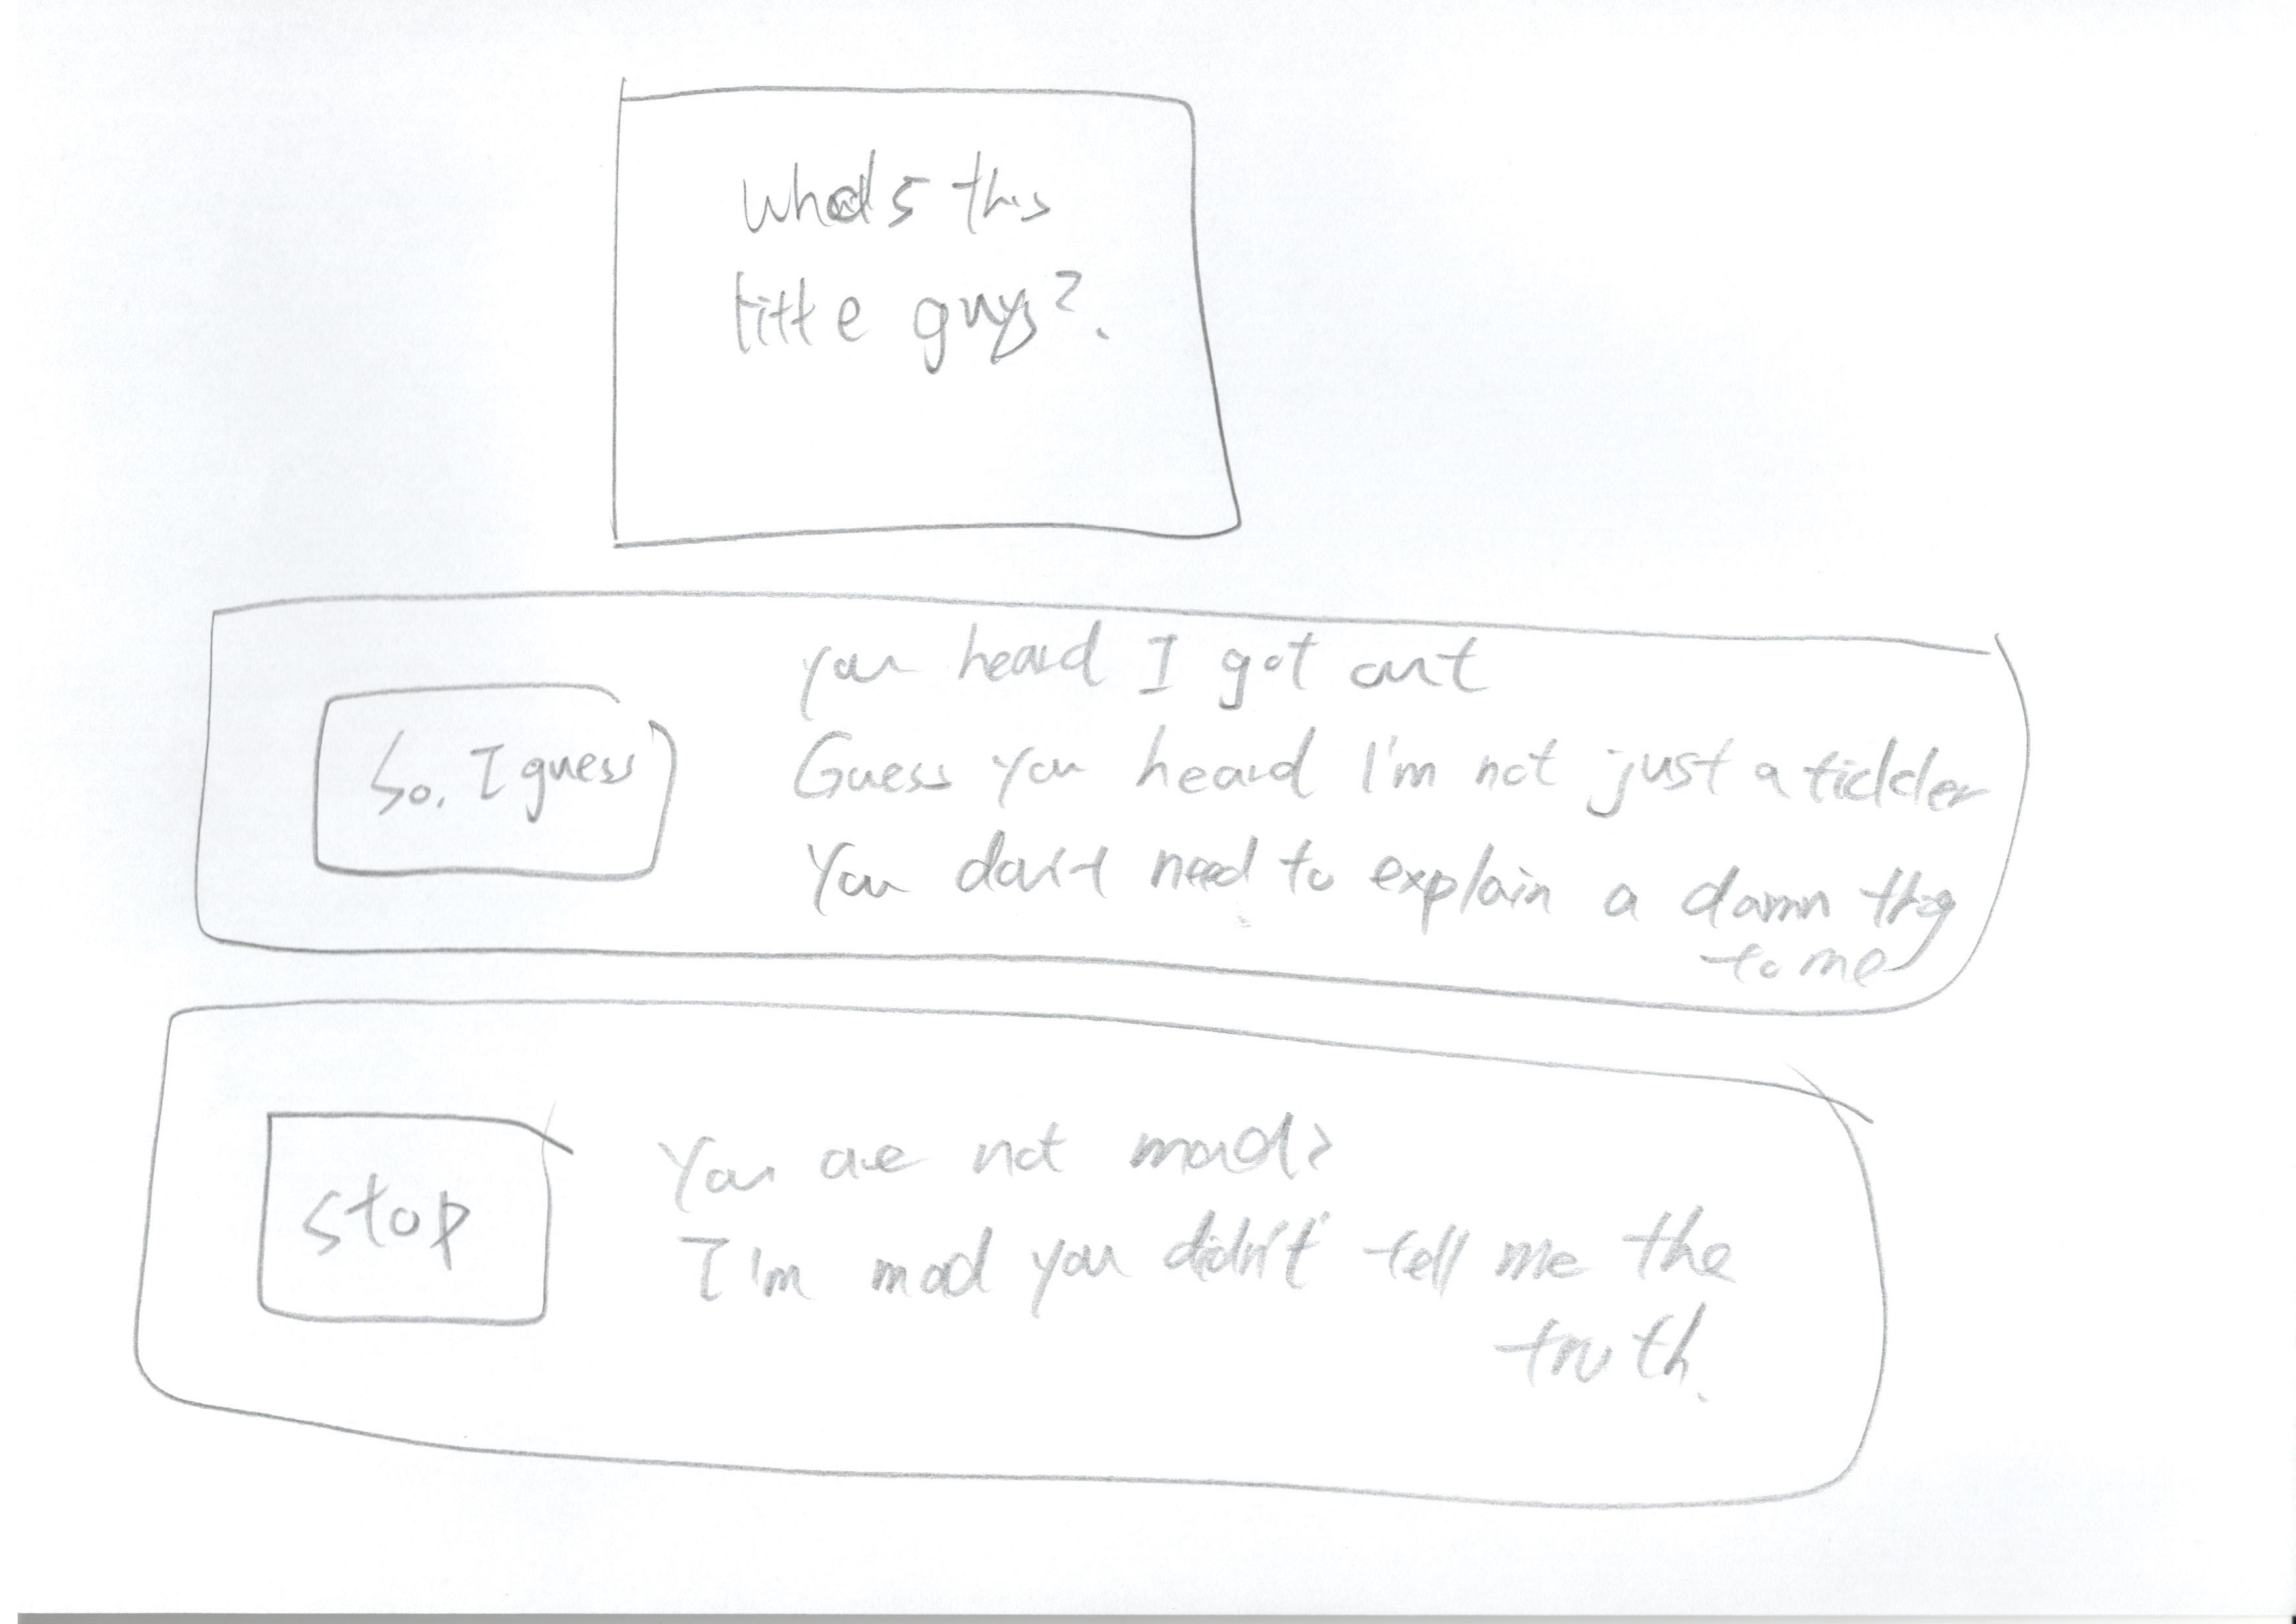 Who's this
little guys?.
So, I guess
you heard I got out
Guess you heard I'm not just a tickler
You don't need to explain a damn thig
to me
stop
You are not mad?
I'm mad you didn't tell me the
truth.